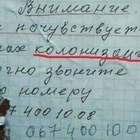 Внимание
почувствуете
колонизац
звоните
номеру
7 400 10.08
067400 10 0